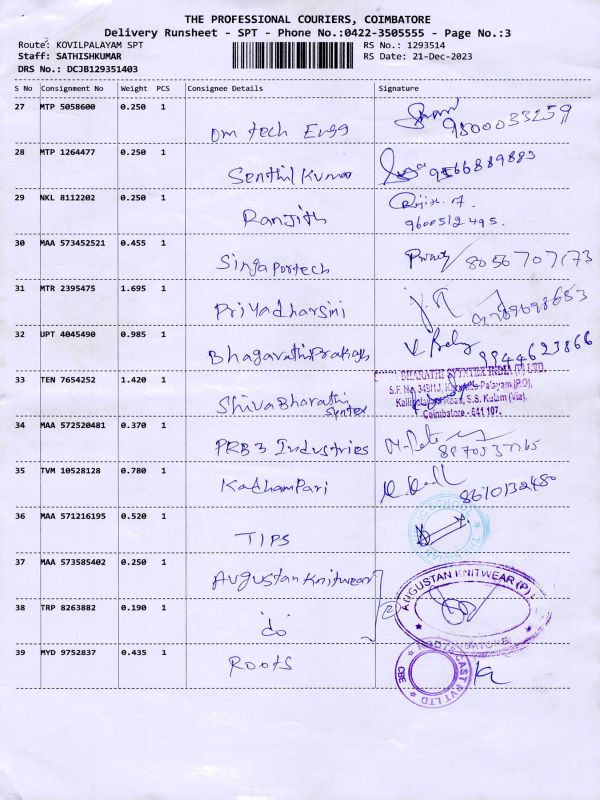 THE PROFESSIONAL COURIERS, COIMBATORE
Delivery Runsheet - SPT - Phone No.:0422-3505555 - Page No.:3
Route: KOVILPALAYAM SPT RS No.: 1293514
Staff: SATHISHKUMAR RS Date: 21-Dec-2023
DRS No.: DCJB129351403
S No Consignment No Weight PCS Consignee Details Signature
27 MTP 5058600 0.250 1
Om tech Engg 9800033259
28 MTP 1264477 0.250 1
Senthil Kumar 9566889883
29 NKL 8112202 0.250 1
Ranjith
9600512495.
30 MAA 573452521 0.455 1
Singaportech 8056707173
31 MTR 2395475 1.695 1
Priyadharsini
32 UPT 4045490 0.985 1
Bhagarathi Prakash 9944623866
33 TEN 7654252 1.420 1
BHARATHI SYNTEX INDIA (P) LTD.
S.F. No. Palayam (P.O),
Road, S.S. Kulam (Via),
Coimbatore - 641 107.
Shiva Bharathi
Syntex
34 MAA 572520481 0.370 1
PRB 3 Industries
35 TVM 10528128 0.780 1
KadhamPari 8610132480
36 MAA 571216195 0.520 1
TIPS
SCHOOL
37 MAA 573585402 0.250 1
Augustan Knitwear
AUGUSTAN KNITWEAR (P)
38 TRP 8263882 0.190 1
do
39 MYD 9752837 0.435 1
Roots
ROOTS CAST PVT LTD
CBE